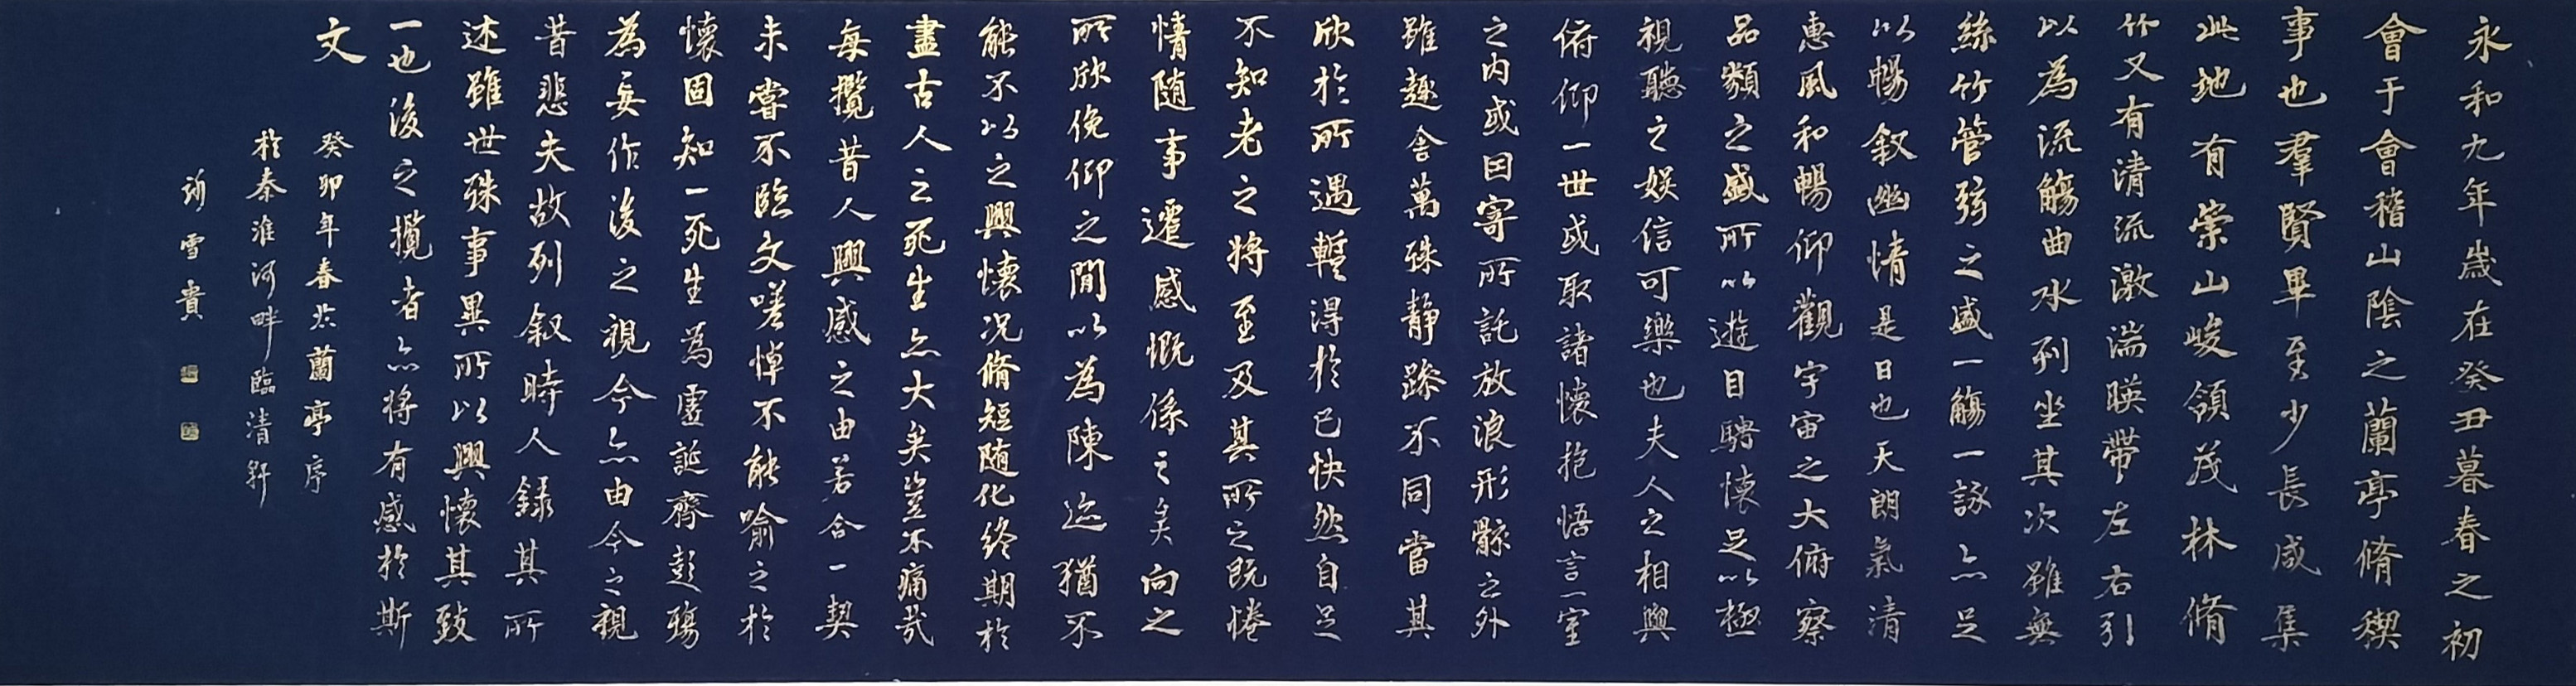 永和九年歲在癸丑暮春之初
會于會稽山陰之蘭亭脩稧
事也羣賢畢至少長咸集
此地有崇山峻領茂林脩
竹又有清流激湍暎帶左右引
以為流觴曲水列坐其次雖無
絲竹管弦之盛一觴一詠亦足
以暢叙幽情是日也天朗氣清
惠風和暢仰觀宇宙之大俯察
品類之盛所以遊目騁懷足以極
視聽之娛信可樂也夫人之相與
俯仰一世或取諸懷抱悟言一室
之內或因寄所託放浪形骸之外
雖趣舍萬殊靜躁不同當其
欣於所遇暫得於己快然自足
不知老之將至及其所之既惓
情隨事遷感慨係之矣向之
所欣俛仰之閒以為陳迹猶不
能不以之興懷況脩短隨化終期於
盡古人云死生亦大矣豈不痛哉
每攬昔人興感之由若合一契
未嘗不臨文嗟悼不能喻之於
懷固知一死生為虛誕齊彭殤
為妄作後之視今亦由今之視
昔悲夫故列叙時人錄其所
述雖世殊事異所以興懷其致
一也後之攬者亦將有感於斯
文
癸卯年春炏蘭亭序
於秦淮河畔臨清軒
雪貴